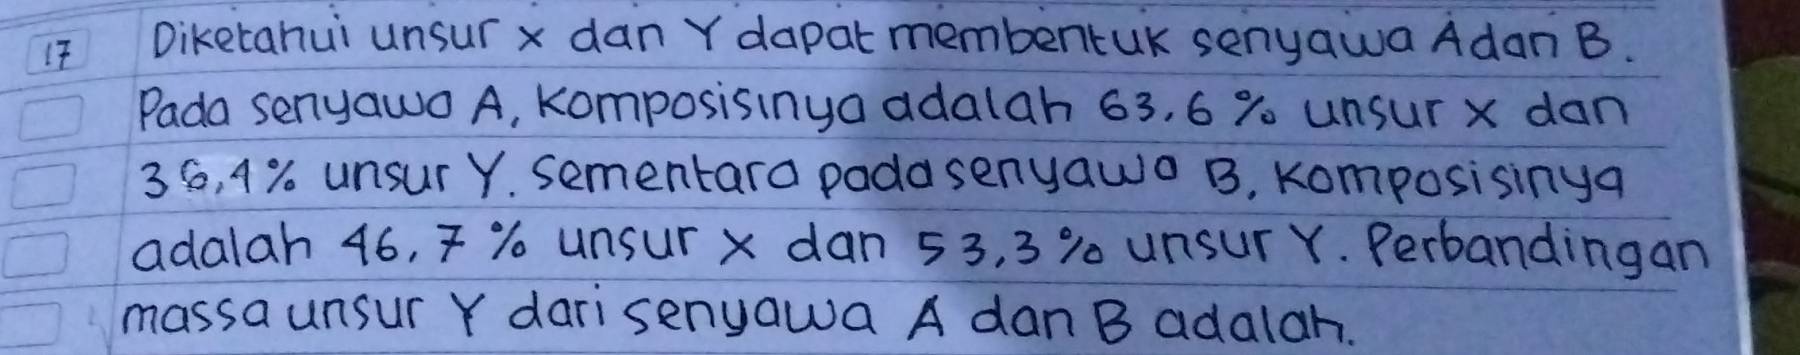 17 Diketahui unsur x dan Y dapat membentuk senyawa A dan B.
Pada senyawa A, komposisinya adalah 63,6 % unsur x dan
36,4% unsur Y. sementara pada senyawa B, komposisinya
adalah 46,7 % unsur x dan 53,3 % unsur Y. Perbandingan
massa unsur Y dari senyawa A dan B adalah.